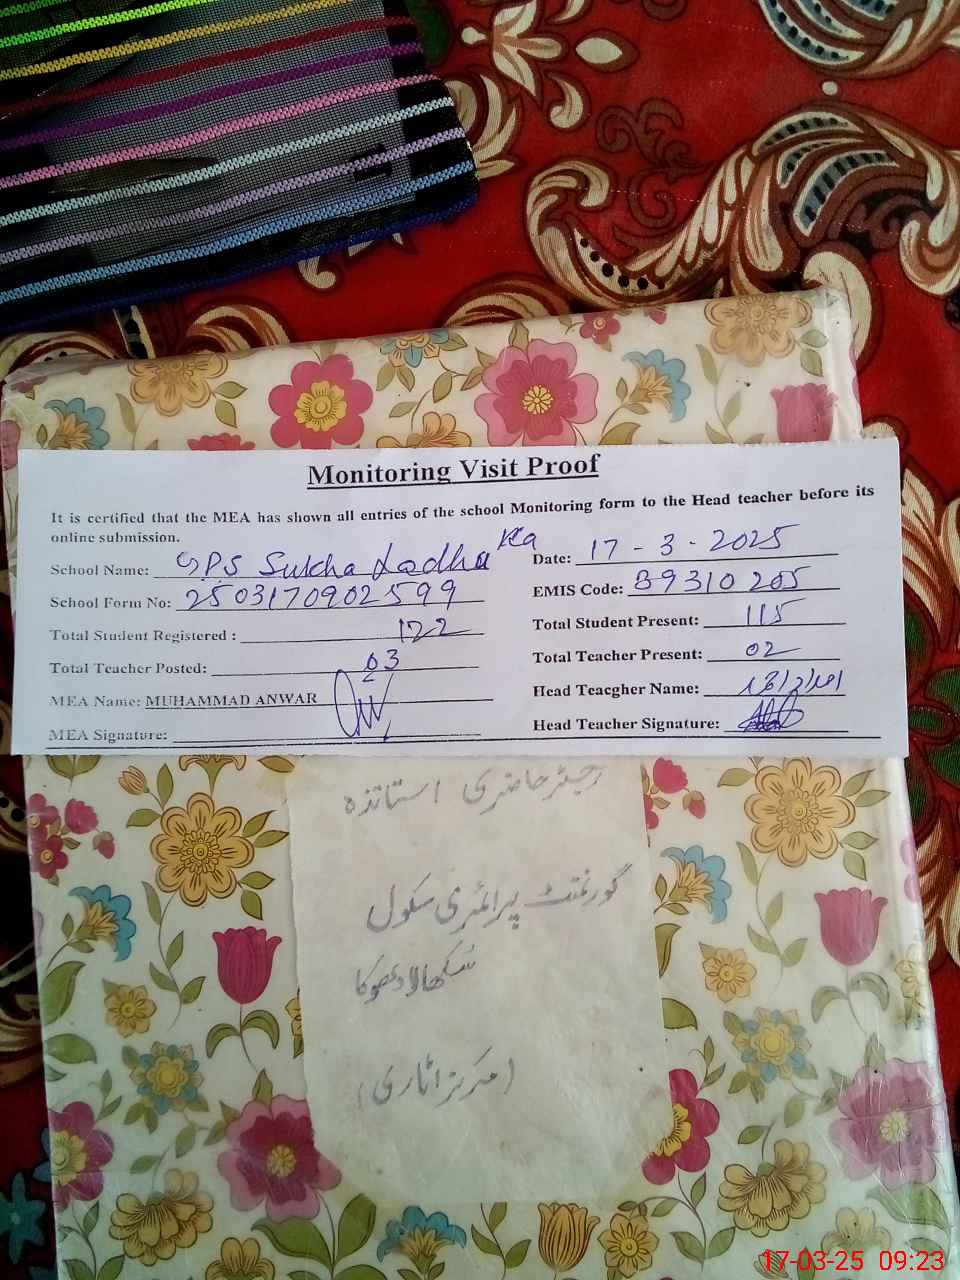 Monitoring Visit Proof
It is certified that the MEA has shown all entries of the school Monitoring form to the Head teacher before its
online submission.
School Name: GPS Sukha Ladha Ka
Date: 17-3-2025
School Form No: 2503170902599
EMIS Code: 39310205
Total Student Registered : 122
Total Student Present: 115
Total Teacher Posted: 03
Total Teacher Present: 02
MEA Name: MUHAMMAD ANWAR
Head Teacgher Name:
MEA Signature:
Head Teacher Signature:
رجسٹر حاضری استاتذہ
گورنمنٹ پرائمری سکول
سکھالادھوکا
(مرکز اٹاری)
17-03-25 09:23